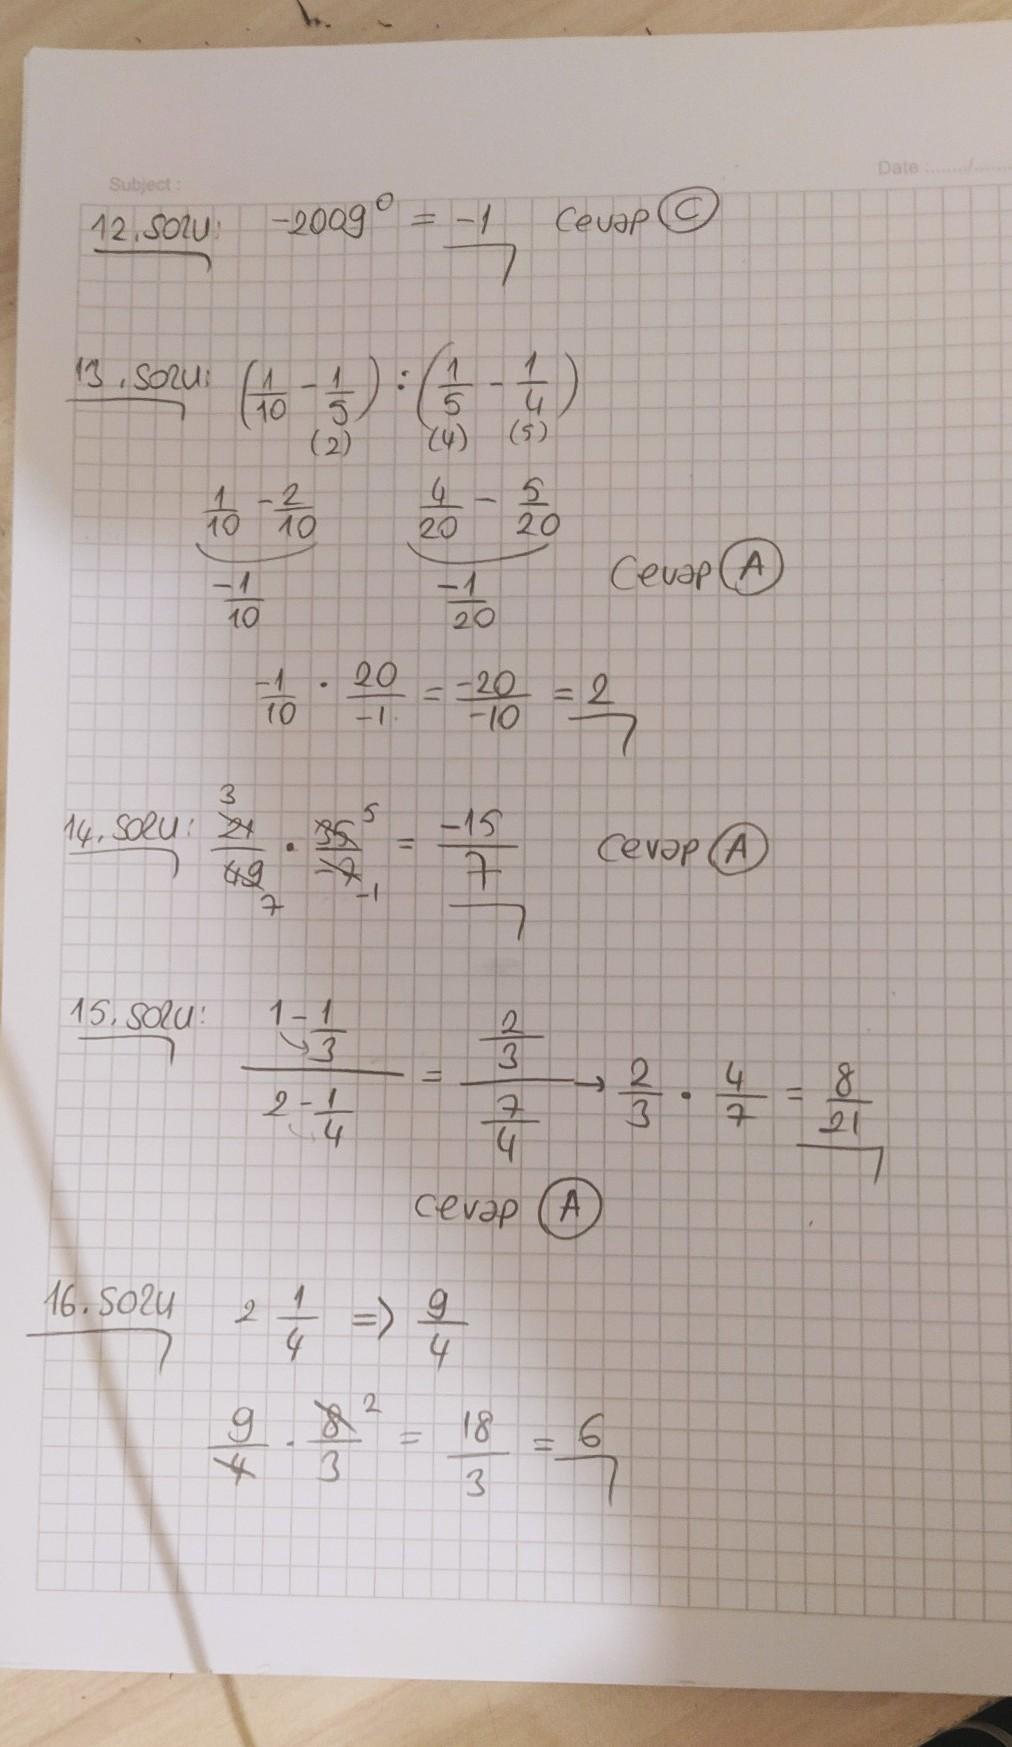 Subject :
Date :....../......
12. soru: -2009⁰ = -1 Cevap C
13. soru: (1/10 - 1/5) : (1/5 - 1/4)
(2) (4) (5)
1/10 - 2/10 4/20 - 5/20
-1/10 -1/20 Cevap A
-1/10 · 20/-1 = -20/-10 = 2
3 5
14. soru: 21/49 · 35/-7 = -15/7 Cevap A
7 -1
15. soru: (1 - 1/3)/(2 - 1/4) = (2/3)/(7/4) → 2/3 · 4/7 = 8/21
Cevap A
16. soru 2 1/4 => 9/4
9/4 · 8/3 ² = 18/3 = 6